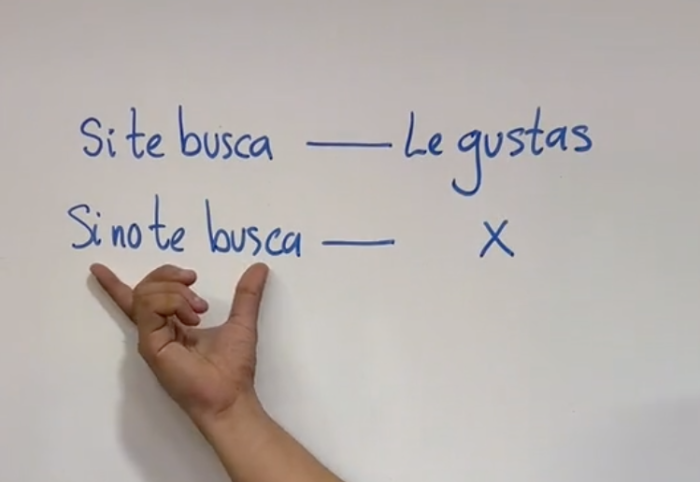 Si te busca — Le gustas
Si no te busca — X